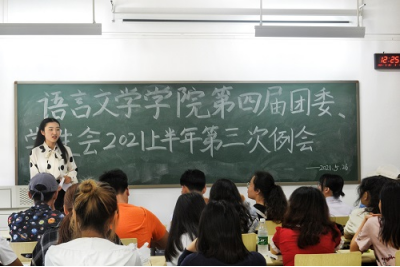 语言文学学院第四届团委、
学生会2021上半年第三次例会
——2021.5.26
12:25